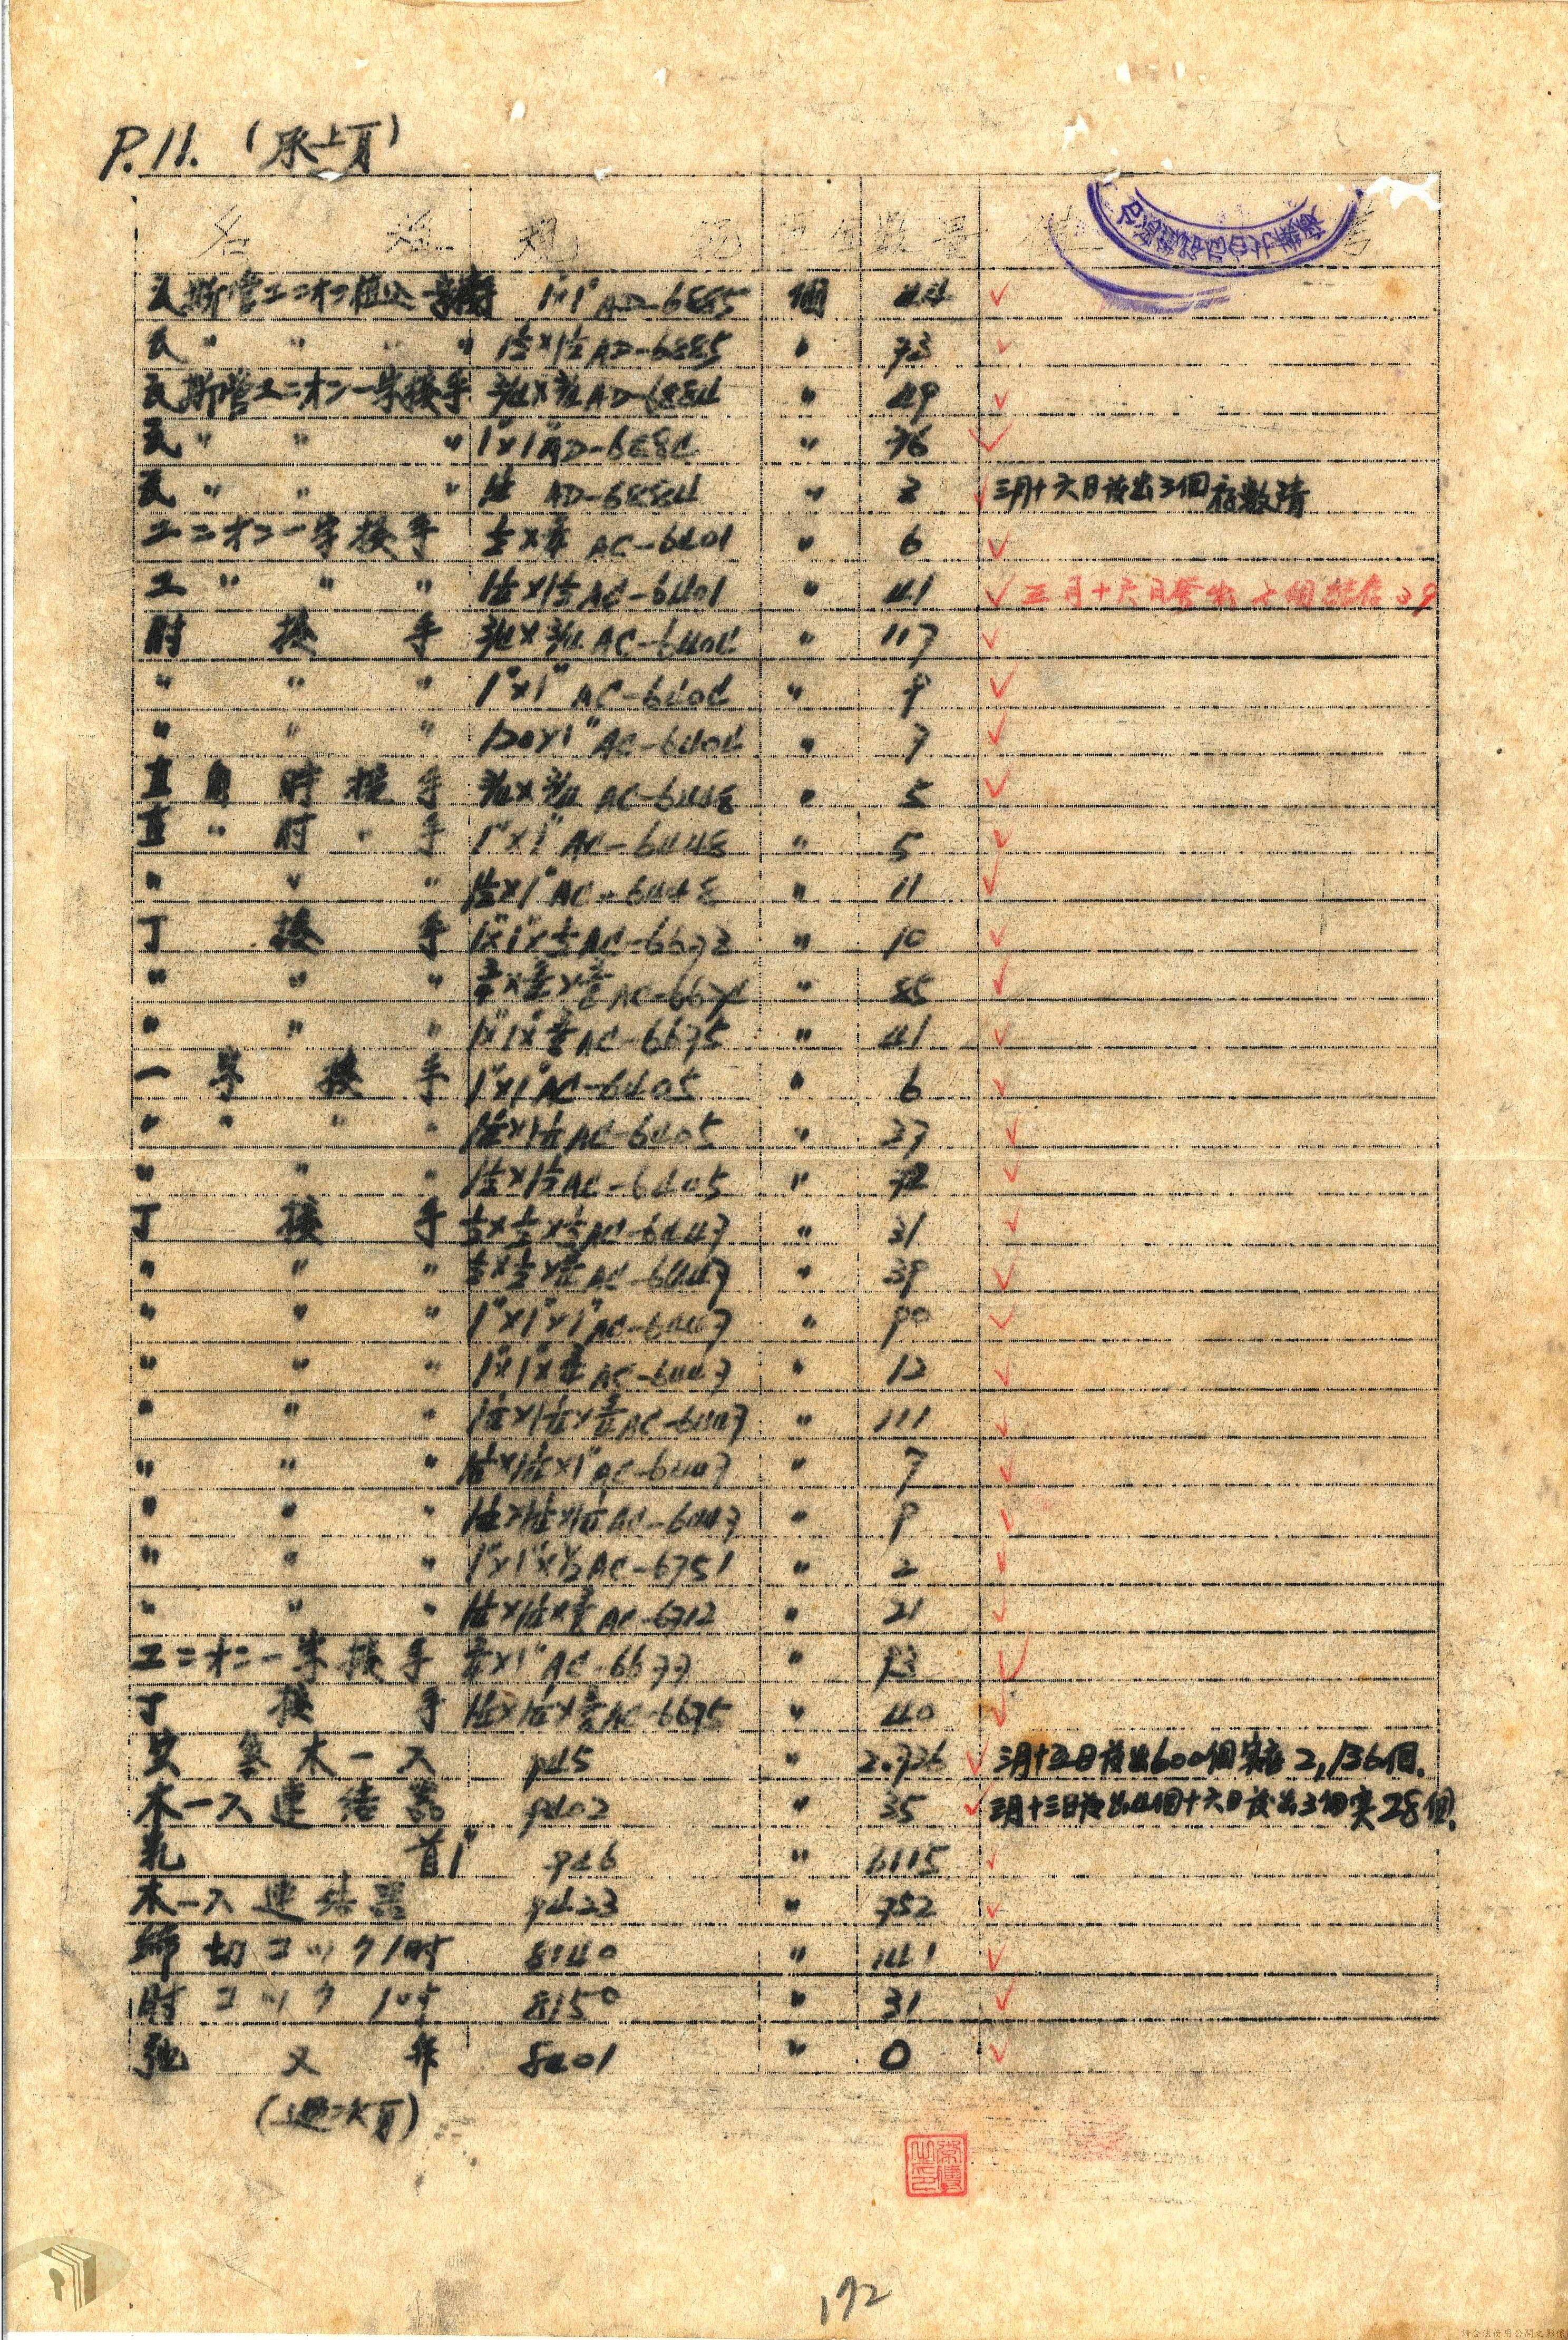 P.11. (承上頁)
名 稱 規 範 單位 數量 備 考
瓦斯管ユニオン植込 1"×1" AD-6885 個 44 ✓
瓦 〃 〃 〃 〃 1½×1½ AD-6885 〃 73 ✓
瓦斯管ユニオン一字接手 ¾×¾ AD-6884 〃 49 ✓
瓦 〃 〃 〃 1"×1" AD-6884 〃 76 ✓
瓦 〃 〃 〃 AD-6884 〃 2 ✓ 三月十六日發出3個存數清
ユニオン一字接手 ½×¾ AC-6401 〃 6 ✓
ユ 〃 〃 〃 1½×1½ AC-6401 〃 41 ✓ 三月十六日發出2個 39
肘接手 ¾×¾ AC-6404 〃 117 ✓
〃 〃 〃 1"×1" AC-6404 〃 9 ✓
〃 〃 〃 120×1" AC-6404 〃 7 ✓
直角肘接手 ¾×¾ AC-6448 〃 5 ✓
直 〃 肘 〃 手 1"×1" AC-6448 〃 5 ✓
〃 〃 〃 1½×1" AC-6448 〃 11 ✓
丁接手 1"×1"×½ AC-6673 〃 10 ✓
〃 〃 〃 AC-6674 〃 85 ✓
〃 〃 〃 1"×1"×¾ AC-6675 〃 41 ✓
一字接手 1"×1" AC-6405 〃 6 ✓
〃 〃 〃 〃 1¼×1¼ AC-6405 〃 37 ✓
〃 〃 〃 1½×1½ AC-6405 〃 72 ✓
丁接手 ½×½×½ AC-6447 〃 31 ✓
〃 〃 〃 ½×½×¾ AC-6447 〃 39 ✓
〃 〃 〃 1"×1"×1" AC-6447 〃 90 ✓
〃 〃 〃 1"×1"×¾ AC-6447 〃 12 ✓
〃 〃 〃 1¼×1¼×¾ AC-6447 〃 111 ✓
〃 〃 〃 1¼×1¼×1" AC-6447 〃 7 ✓
〃 〃 〃 1¼×1¼×1¼ AC-6447 〃 9 ✓
〃 〃 〃 1"×1"×½ AC-6751 〃 2 ✓
〃 〃 〃 1¼×1¼×¾ AC-6712 〃 21 ✓
ユニオン一字接手 ¾×1" AC-6677 〃 93 ✓
丁接手 1¼×1¼×¾ AC-6675 〃 40 ✓
空氣ホース 945 〃 2.736 ✓ 三月十五日發出600個實存2,136個.
ホース連結器 9402 〃 35 ✓ 三月十三日發出4個十六日發出3個实28個.
乳首1" 946 〃 6115 ✓
ホース連結器 9423 〃 752 ✓
締切コック1吋 8140 〃 141 ✓
肘コック1吋 8150 〃 31 ✓
弛又弁 8401 〃 0 ✓
(過次頁)
192